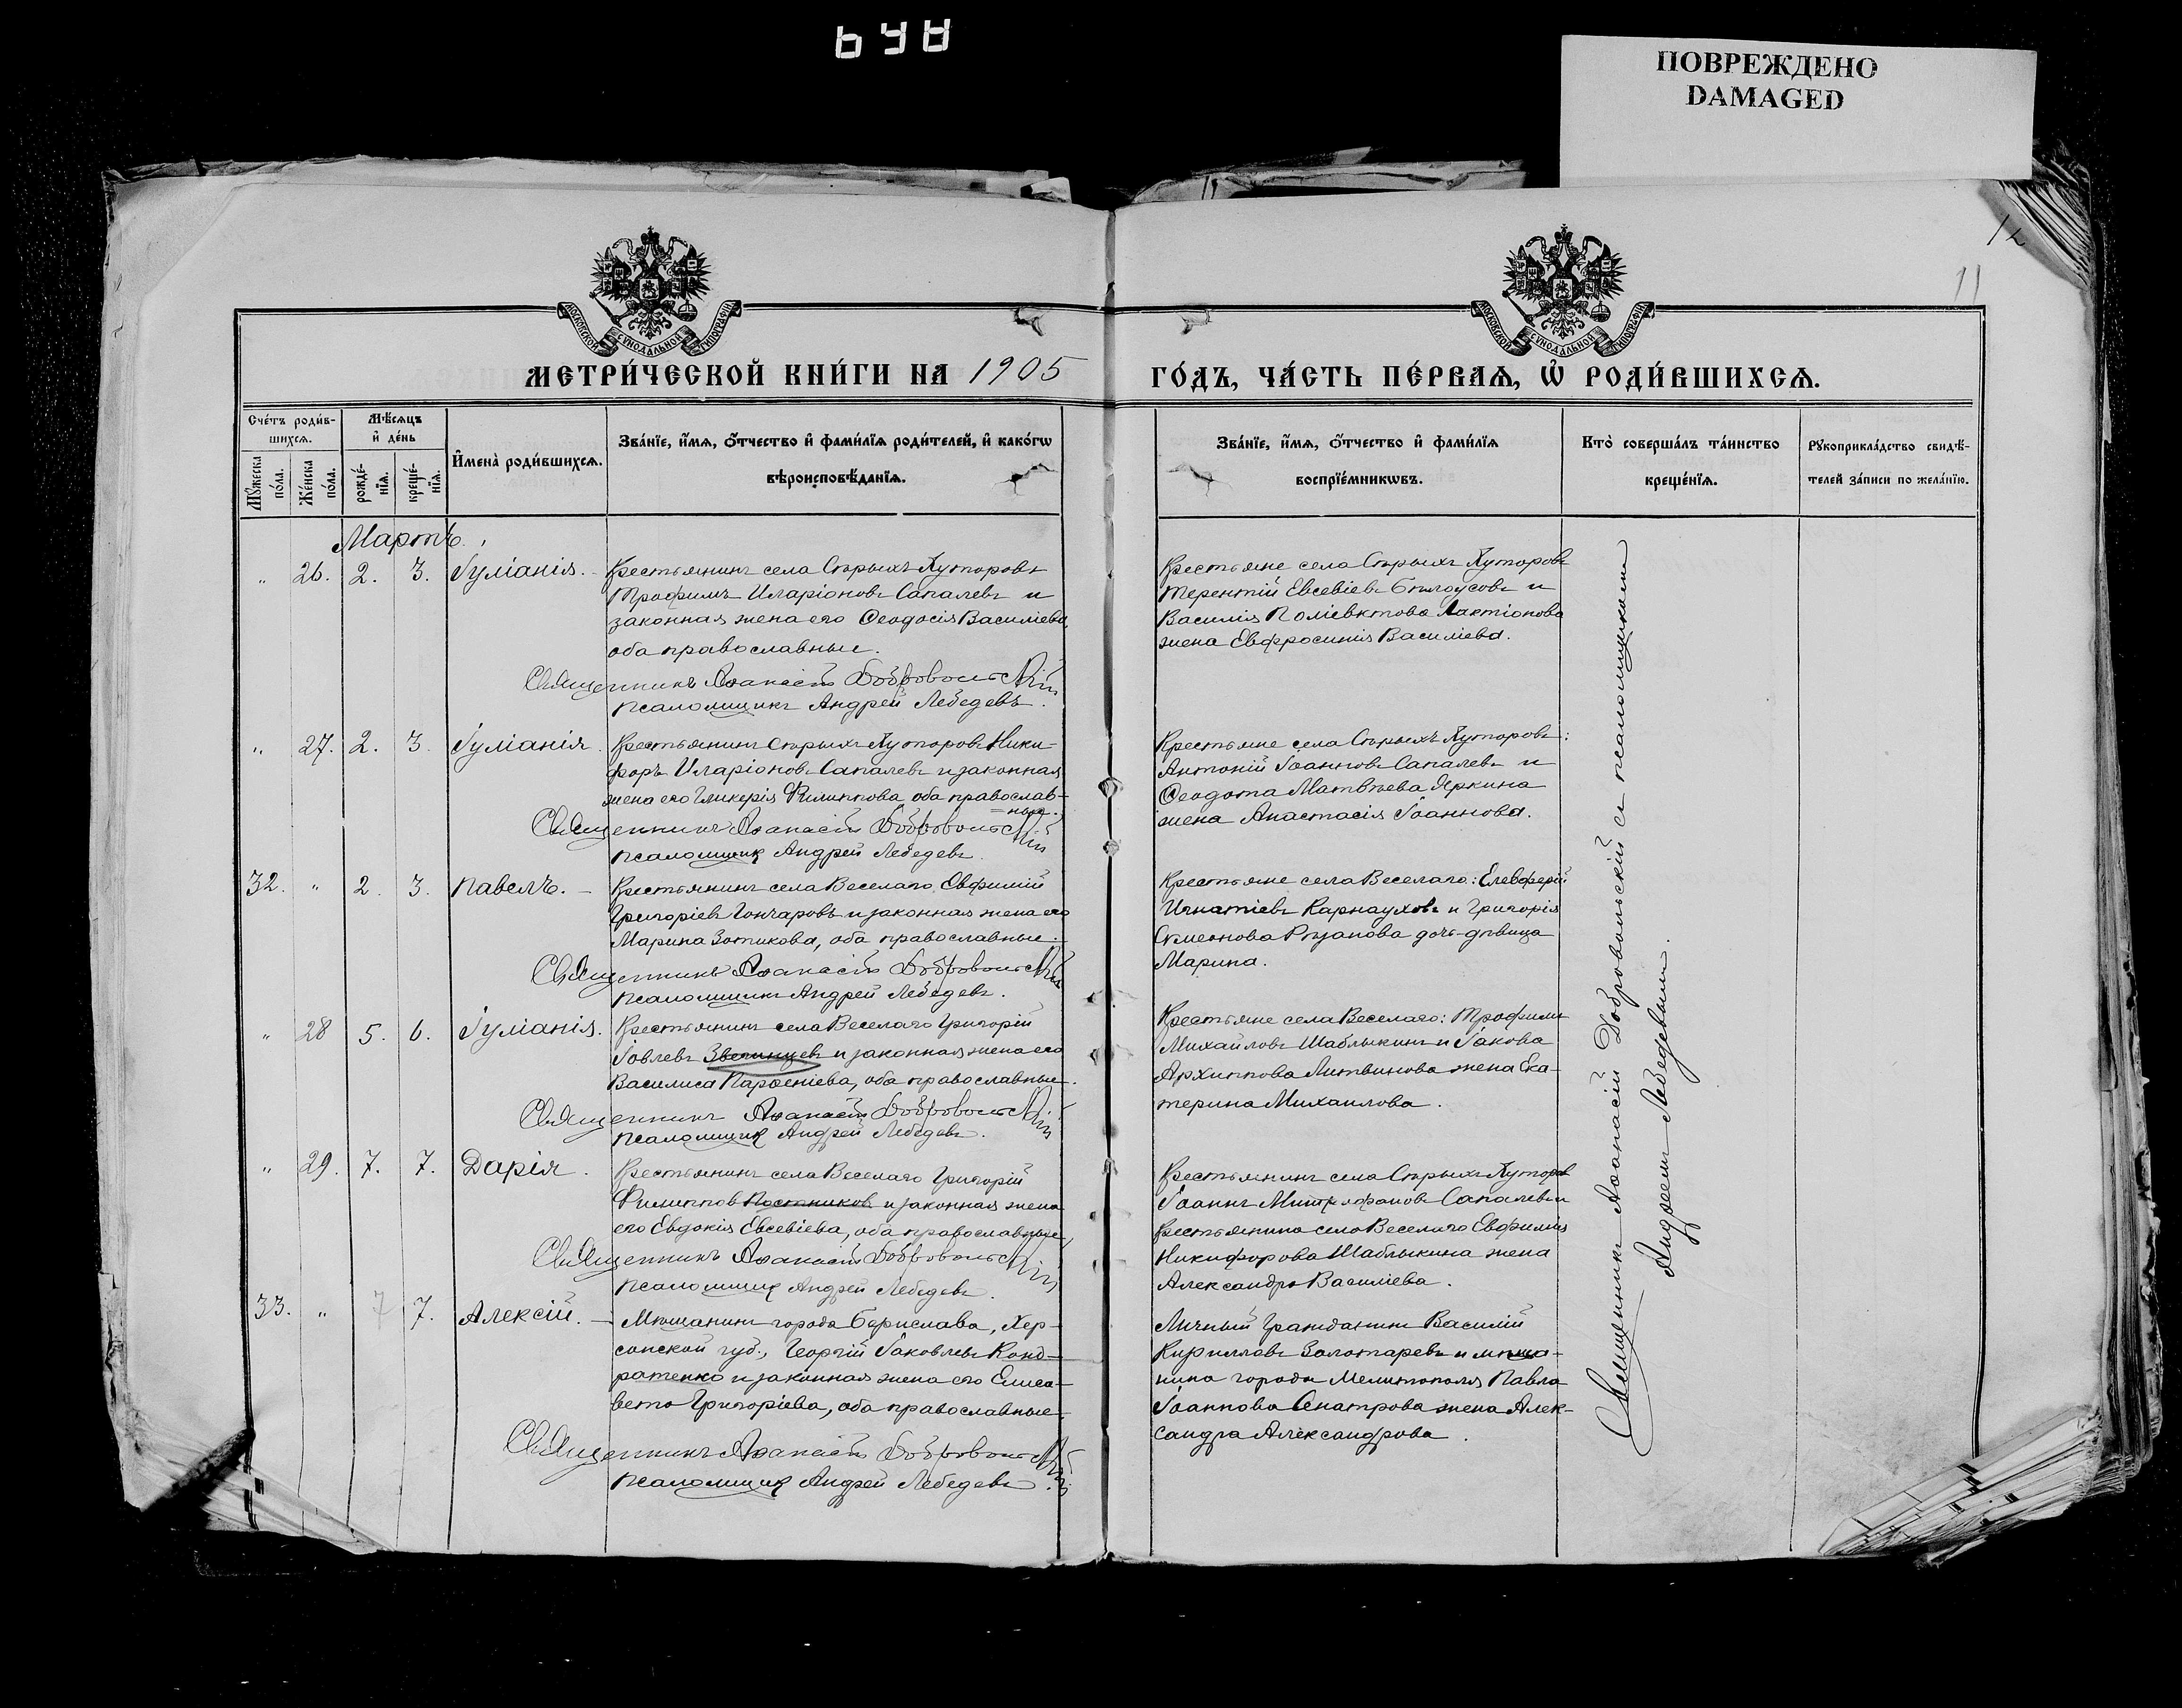 648
ПОВРЕЖДЕНО
DAMAGED
12
11
МОСКОВСКОЙ СѴНОДАЛЬНОЙ ТИПОГРАФІИ
МОСКОВСКОЙ СѴНОДАЛЬНОЙ ТИПОГРАФІИ
МЕТРИ́ЧЕСКОЙ КНИ́ГИ НА 1905
ГО́ДЪ, ЧА́СТЬ ПЕ́РВАѦ, Ѡ҆ РОДИ́ВШИХСѦ.
Сче́тъ роди́в-
шихсѧ.
Мꙋ́жеска по́ла.
Же́нска по́ла.
Мѣ́сѧцъ
и҆ де́нь
рожде́-
нїѧ.
креще́-
нїѧ.
И҆мена̀ роди́вшихсѧ.
Зва́нїе, и҆́мѧ, ѻ҆́тчество и҆ фамилїѧ роди́телей, и҆ како́гѡ
вѣроисповѣ́данїѧ.
Зва́нїе, и҆́мѧ, ѻ҆́тчество и҆ фами́лїѧ
воспрїе́мникѡвъ.
Кто̀ соверша́лъ та́инство
креще́нїѧ.
Рꙋкоприкла́дство свидѣ́-
телей за́писи по жела́нїю.
Мартъ.
„ 26. 2. 3. Іуліанія.
Крестьянинъ села Сѣрыхъ Хуторовъ
Трофимъ Иларіоновъ Сапалевъ и
законная жена его Ѳеодосія Василіева,
оба православные.
Священникъ Аѳанасій Добровольскій
Псаломщикъ Андрей Лебедевъ.
Крестьяне села Сѣрыхъ Хуторовъ
Терентій Евсевіевъ Бѣлоусовъ и
Василія Поліевктова Лактіонова
жена Евфросинія Василіева.
„ 27. 2. 3. Іуліанія.
Крестьянинъ Сѣрыхъ Хуторовъ Ники-
форъ Иларіоновъ Сапалевъ и законная
жена его Гликерія Филиппова, оба православ-
=ные.
Священникъ Аѳанасій Добровольскій
Псаломщикъ Андрей Лебедевъ.
Крестьяне села Сѣрыхъ Хуторовъ:
Антоній Іоанновъ Сапалевъ и
Ѳеодота Матвѣева Яркина
жена Анастасія Іоаннова.
32. „ 2. 3. Павелъ.
Крестьянинъ села Веселаго Евфимій
Григоріевъ Гончаровъ и законная жена его
Марина Зотикова, оба православные.
Священникъ Аѳанасій Добровольскій
Псаломщикъ Андрей Лебедевъ.
Крестьяне села Веселаго: Елевферій
Игнатіевъ Карнауховъ и Григорія
Симеонова Рязанова дочь-дѣвица
Марина.
„ 28 5. 6. Іуліанія.
Крестьянинъ села Веселаго Григорій
Іовлевъ Звегинцевъ и законная жена его
Василиса Парѳеніева, оба православные.
Священникъ Аѳанасій Добровольскій
Псаломщикъ Андрей Лебедевъ.
Крестьяне села Веселаго: Трофимъ
Михайловъ Шаблыкинъ и Іакова
Архиппова Литвинова жена Ека-
терина Михаилова.
„ 29. 7. 7. Дарія.
Крестьянинъ села Веселаго Григорій
Филиппов Постников и законная жена
его Евдокія Евсевіева, оба православные,
Священникъ Аѳанасій Добровольскій
Псаломщикъ Андрей Лебедевъ.
Крестьянинъ села Сѣрыхъ Хуторовъ
Іоаннъ Митрофановъ Сапалевъ и
крестьянина села Веселаго Евфимія
Никифорова Шаблыкина жена
Александра Василіева.
33. „ 7 7. Алексій.
Мѣщанинъ города Берислава, Хер-
сонской губ., Георгій Іаковлевъ Конд-
ратенко и законная жена его Елиса-
вета Григоріева, оба православные.
Священникъ Аѳанасій Добровольскій
Псаломщикъ Андрей Лебедевъ.
Личный гражданинъ Василій
Кирилловъ Золотаревъ и мѣща-
нина города Мелитополя Павла
Іоаннова Сенатрова жена Алек-
сандра Александрова.
Священникъ Аѳанасій Добровольскій съ псаломщикомъ
Андреемъ Лебедевымъ.